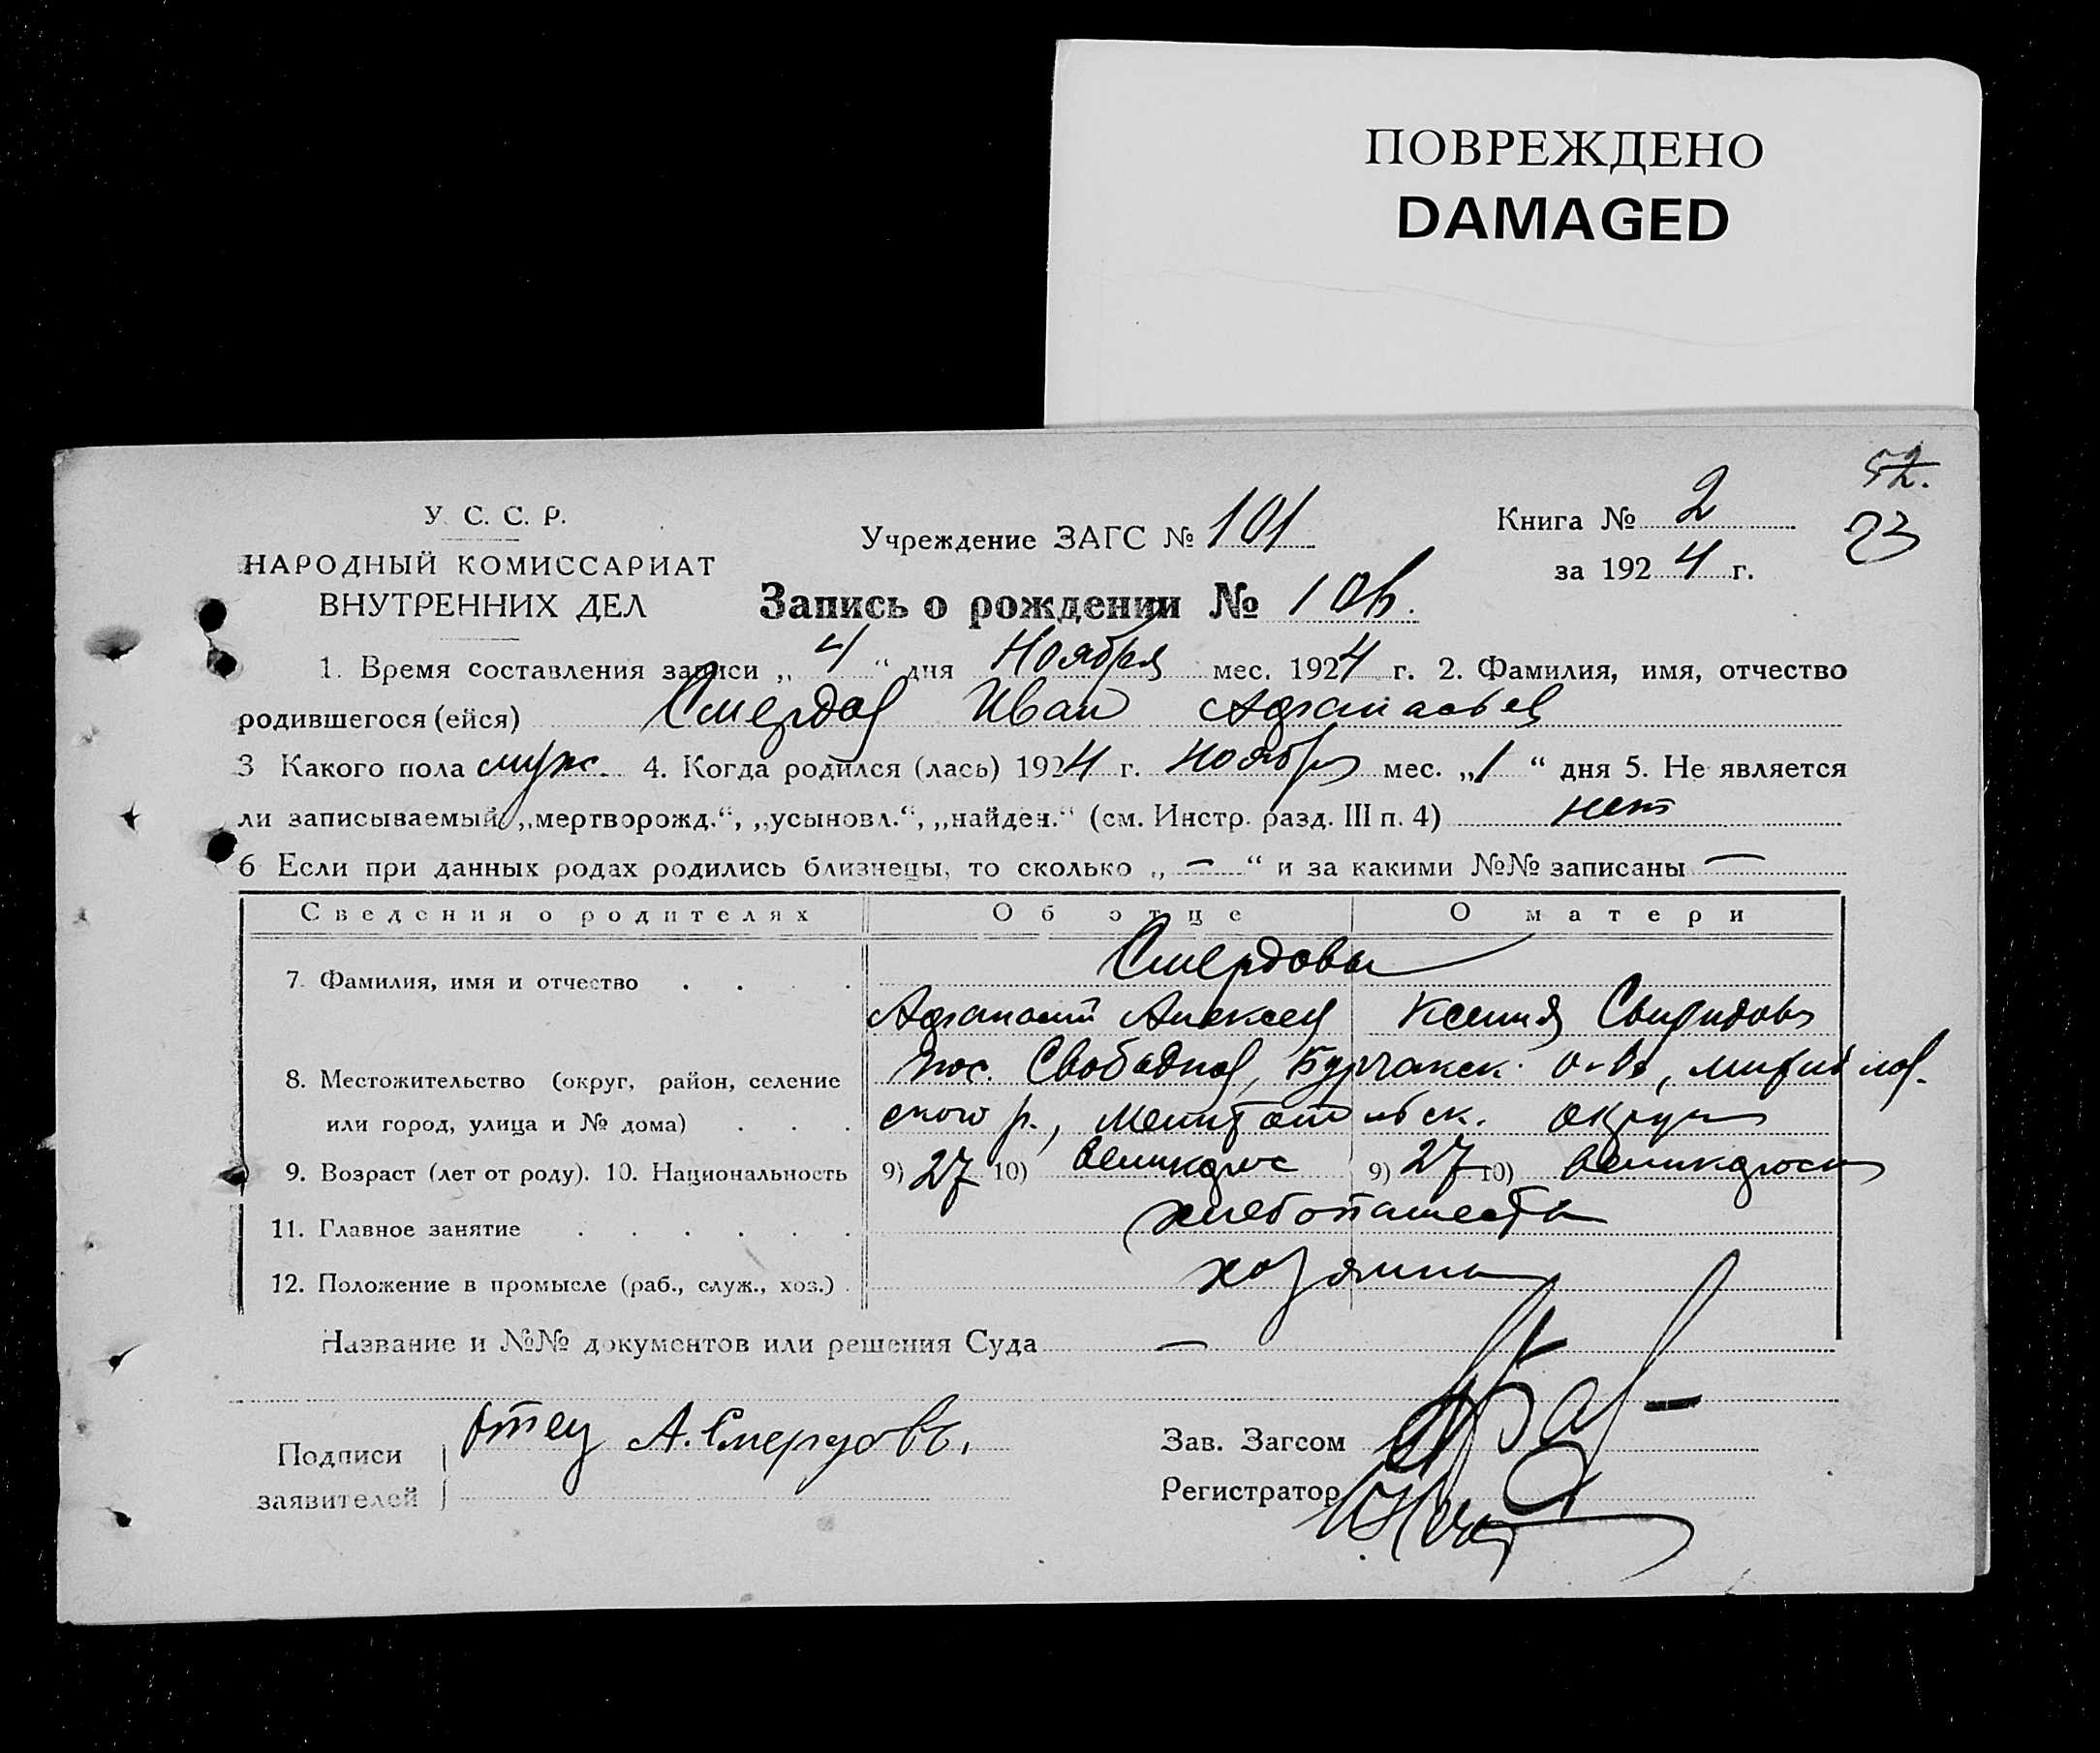 ПОВРЕЖДЕНО
DAMAGED
52.
23
У. С. С. Р.
НАРОДНЫЙ КОМИССАРИАТ
ВНУТРЕННИХ ДЕЛ
Учреждение ЗАГС № 101
Книга № 2
за 1924 г.
Запись о рождении № 106.
1. Время составления записи „4“ дня Ноября мес. 1924 г. 2. Фамилия, имя, отчество
родившегося (ейся) Смердов Иван Афанасьев
3 Какого пола муж. 4. Когда родился (лась) 1924 г. Ноября мес. „1“ дня 5. Не является
ли записываемый „мертворожд.“, „усыновл.“, „найден.“ (см. Инстр. разд. III п. 4) нет
6 Если при данных родах родились близнецы, то сколько „—“ и за какими №№ записаны —
Сведения о родителях Об отце О матери
7. Фамилия, имя и отчество Смердовы
Афанасий Алексеев Ксения Свиридова
8. Местожительство (округ, район, селение пос. Свободной, Бурчакск. о-ва,
или город, улица и № дома) ского р., Мелитопольск. округа
9. Возраст (лет от роду). 10. Национальность 9) 27 10) великорос 9) 27 10) великороска
11. Главное занятие хлебопашество
12. Положение в промысле (раб., служ., хоз.) хозяин
Название и №№ документов или решения Суда —
Подписи заявителей отец А. Смердовъ.
Зав. Загсом
Регистратор